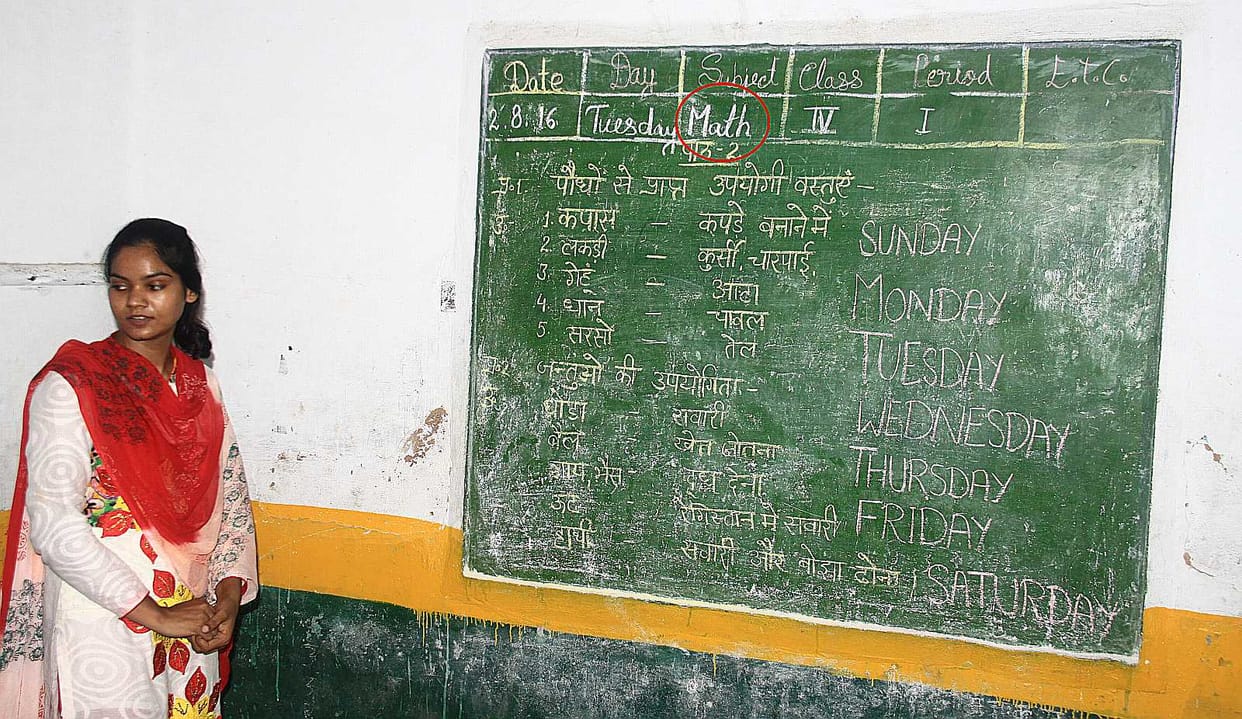 Date Day Subject Class Period E.T.C.
2.8.16 Tuesday Math IV I
पाठ-2
प्र.1 पौधों से प्राप्त उपयोगी वस्तुएं -
उ. 1. कपास - कपडे बनाने में
2. लकडी - कुर्सी, चारपाई,
3. गेहूं - आटा
4. धान - चावल
5. सरसो - तेल
प्र.2 जन्तुओ की उपयोगिता -
उ. घोडा - सवारी
बैल - खेत जोतना
गाय, भैंस - दूध देना
ऊंट - रेगिस्तान में सवारी
हाथी - सवारी और बोझा ढोना।
SUNDAY
MONDAY
TUESDAY
WEDNESDAY
THURSDAY
FRIDAY
SATURDAY